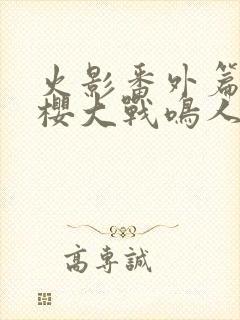 火影番外篇
櫻大戰鳴人
高專誠